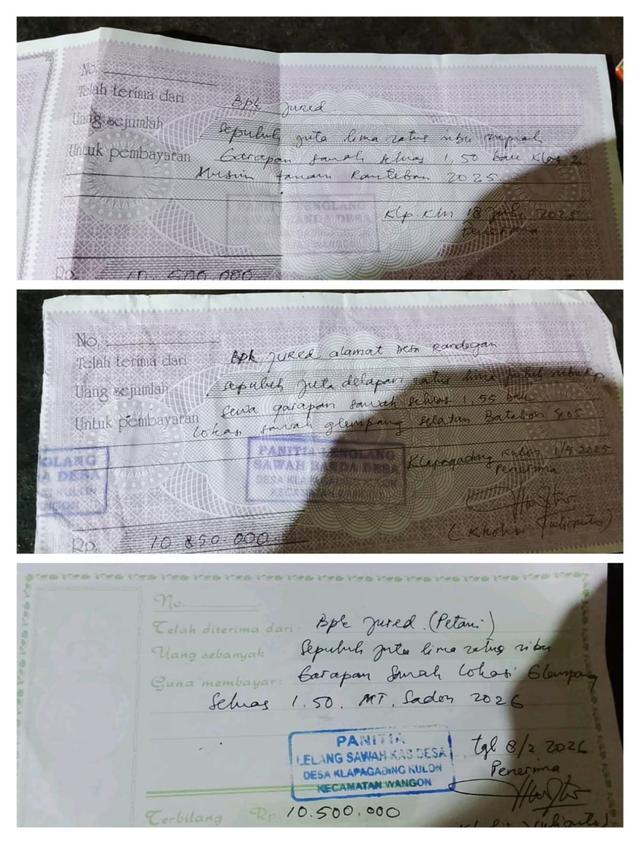 No.
Telah terima dari Bpk Jured
Uang sejumlah Sepuluh juta lima ratus ribu rupiah
Untuk pembayaran Garapan sawah seluas 1,50 bau Klas 2
Musim tanam Ranteban 2025
PANITIA LENGLANG
SAWAH BANDA DESA
Klp. Kln 18 2025
Penerima
Rp. 10 500.000
No.
Telah terima dari Bpk Jured alamat Desa Randegan
Uang sejumlah Sepuluh juta delapan ratus lima puluh ribu rp
Untuk pembayaran Sewa garapan sawah seluas 1,55 bau
lokasi sawah glempang selatan
LANG
A DESA
KULON
PANITIA LENGLANG
SAWAH BANDA DESA
DESA KLAPAGADING KULON
KECAMATAN WANGON
Klapagading Kulon 2025
Penerima
Rp. 10 850 000
No.
Telah diterima dari : Bpk Jured (Petani)
Uang sebanyak Sepuluh juta lima ratus ribu
Guna membayar: Garapan Sawah Lokasi Glempang
Seluas 1.50. MT. Sadon 2026
PANITIA
LELANG SAWAH KAS DESA
DESA KLAPAGADING KULON
KECAMATAN WANGON
tgl 8/2 2026
Penerima
Terbilang Rp. 10.500.000